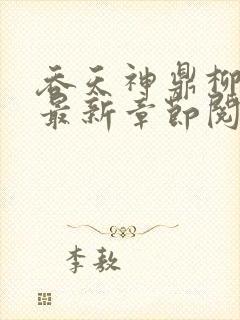 吞天神鼎柳
最新章节阅
李敖